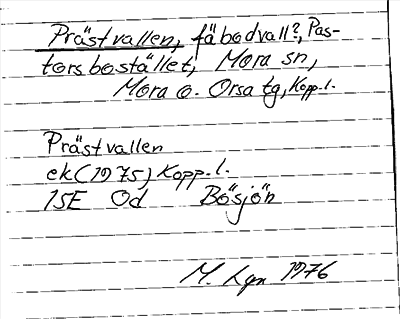 Prästvallen, fäbodvall?, Pas-
torsbostället, Mora sn,
Mora o. Orsa tg, Kopp. l.
Prästvallen
ek (1975) Kopp. l.
15E 0d Bösjön
M. Lgn 1976